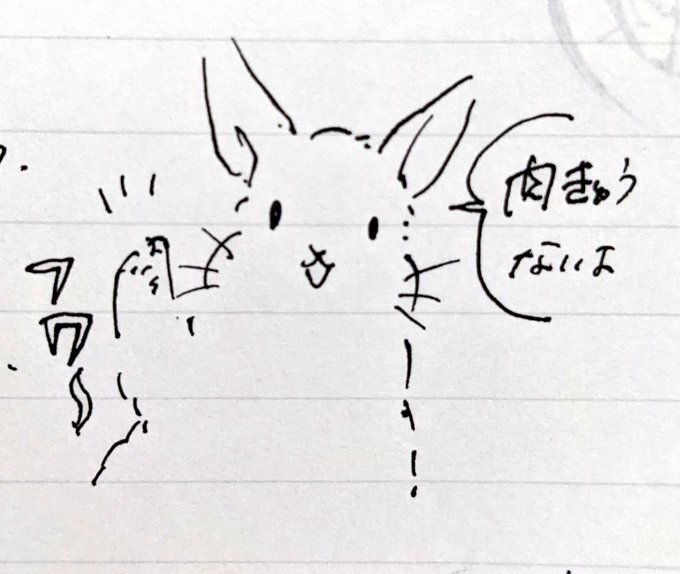 肉きゅう
ないよ
フワ〜